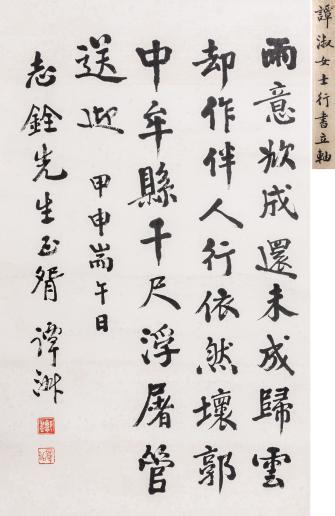 譚淑女士行書立軸
雨意欲成還未成歸雲
却作伴人行依然壞郭
中牟縣千尺浮屠管
送迎 甲申端午日
志銓先生正腎 譚淑